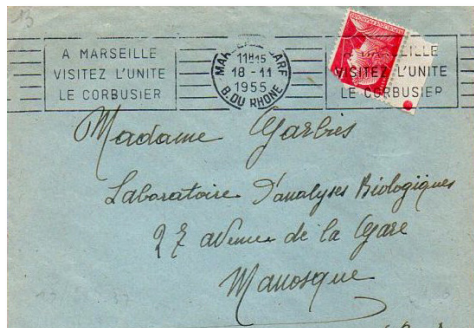 A MARSEILLE
VISITEZ L'UNITE
LE CORBUSIER
11H15
18 - 11
1955
B. DU RHONE
MARSEILLE
VISITEZ L'UNITE
LE CORBUSIER
Madame Garbies
Laboratoire d'analyses Biologiques
27 avenue de la Gare
Manosque